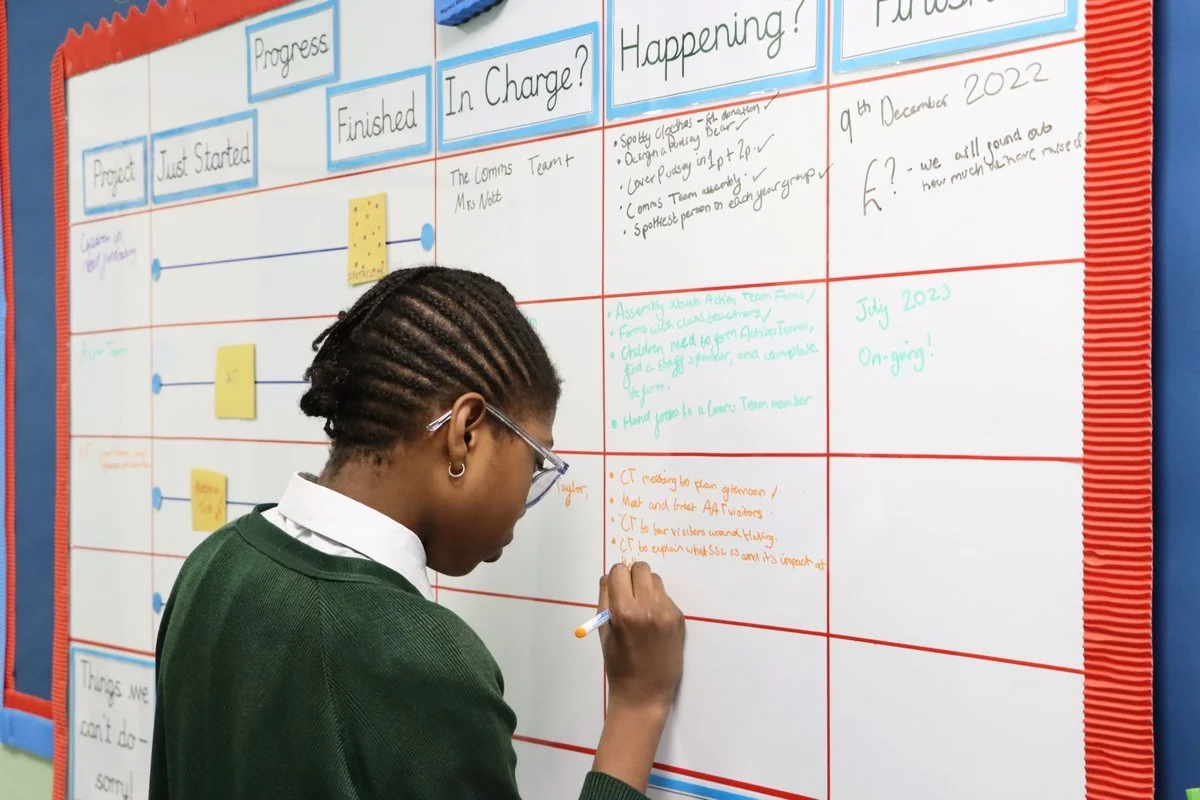 Progress
Project
Just Started
Finished
In Charge?
Happening?
Children in
need fundraising
SPOTACULAR
The Comms Team +
Mrs Nott
• Spotty clothes - £1 donation ✓
• Design a Pudsey Bear ✓
• Cover Pudsey in 1p + 2p ✓
• Comms Team assembly ✓
• Spottiest person in each year group ✓
9th December 2022
£? - we will found out
how much we have raised
Action Team
AT
• Assembly about Action Team Forms ✓
• Forms with class teachers ✓
• Children need to form Action Teams,
find a staff sponsor, and complete
the form.
• Hand forms to a Comms Team member
July 2023
On-going!
Taylor,
• CT meeting to plan afternoon ✓
• Meet and Greet AAT visitors
• CT to tour visitors around
• CT to explain what SSC is and it's impact at
Things we
can't do -
sorry!